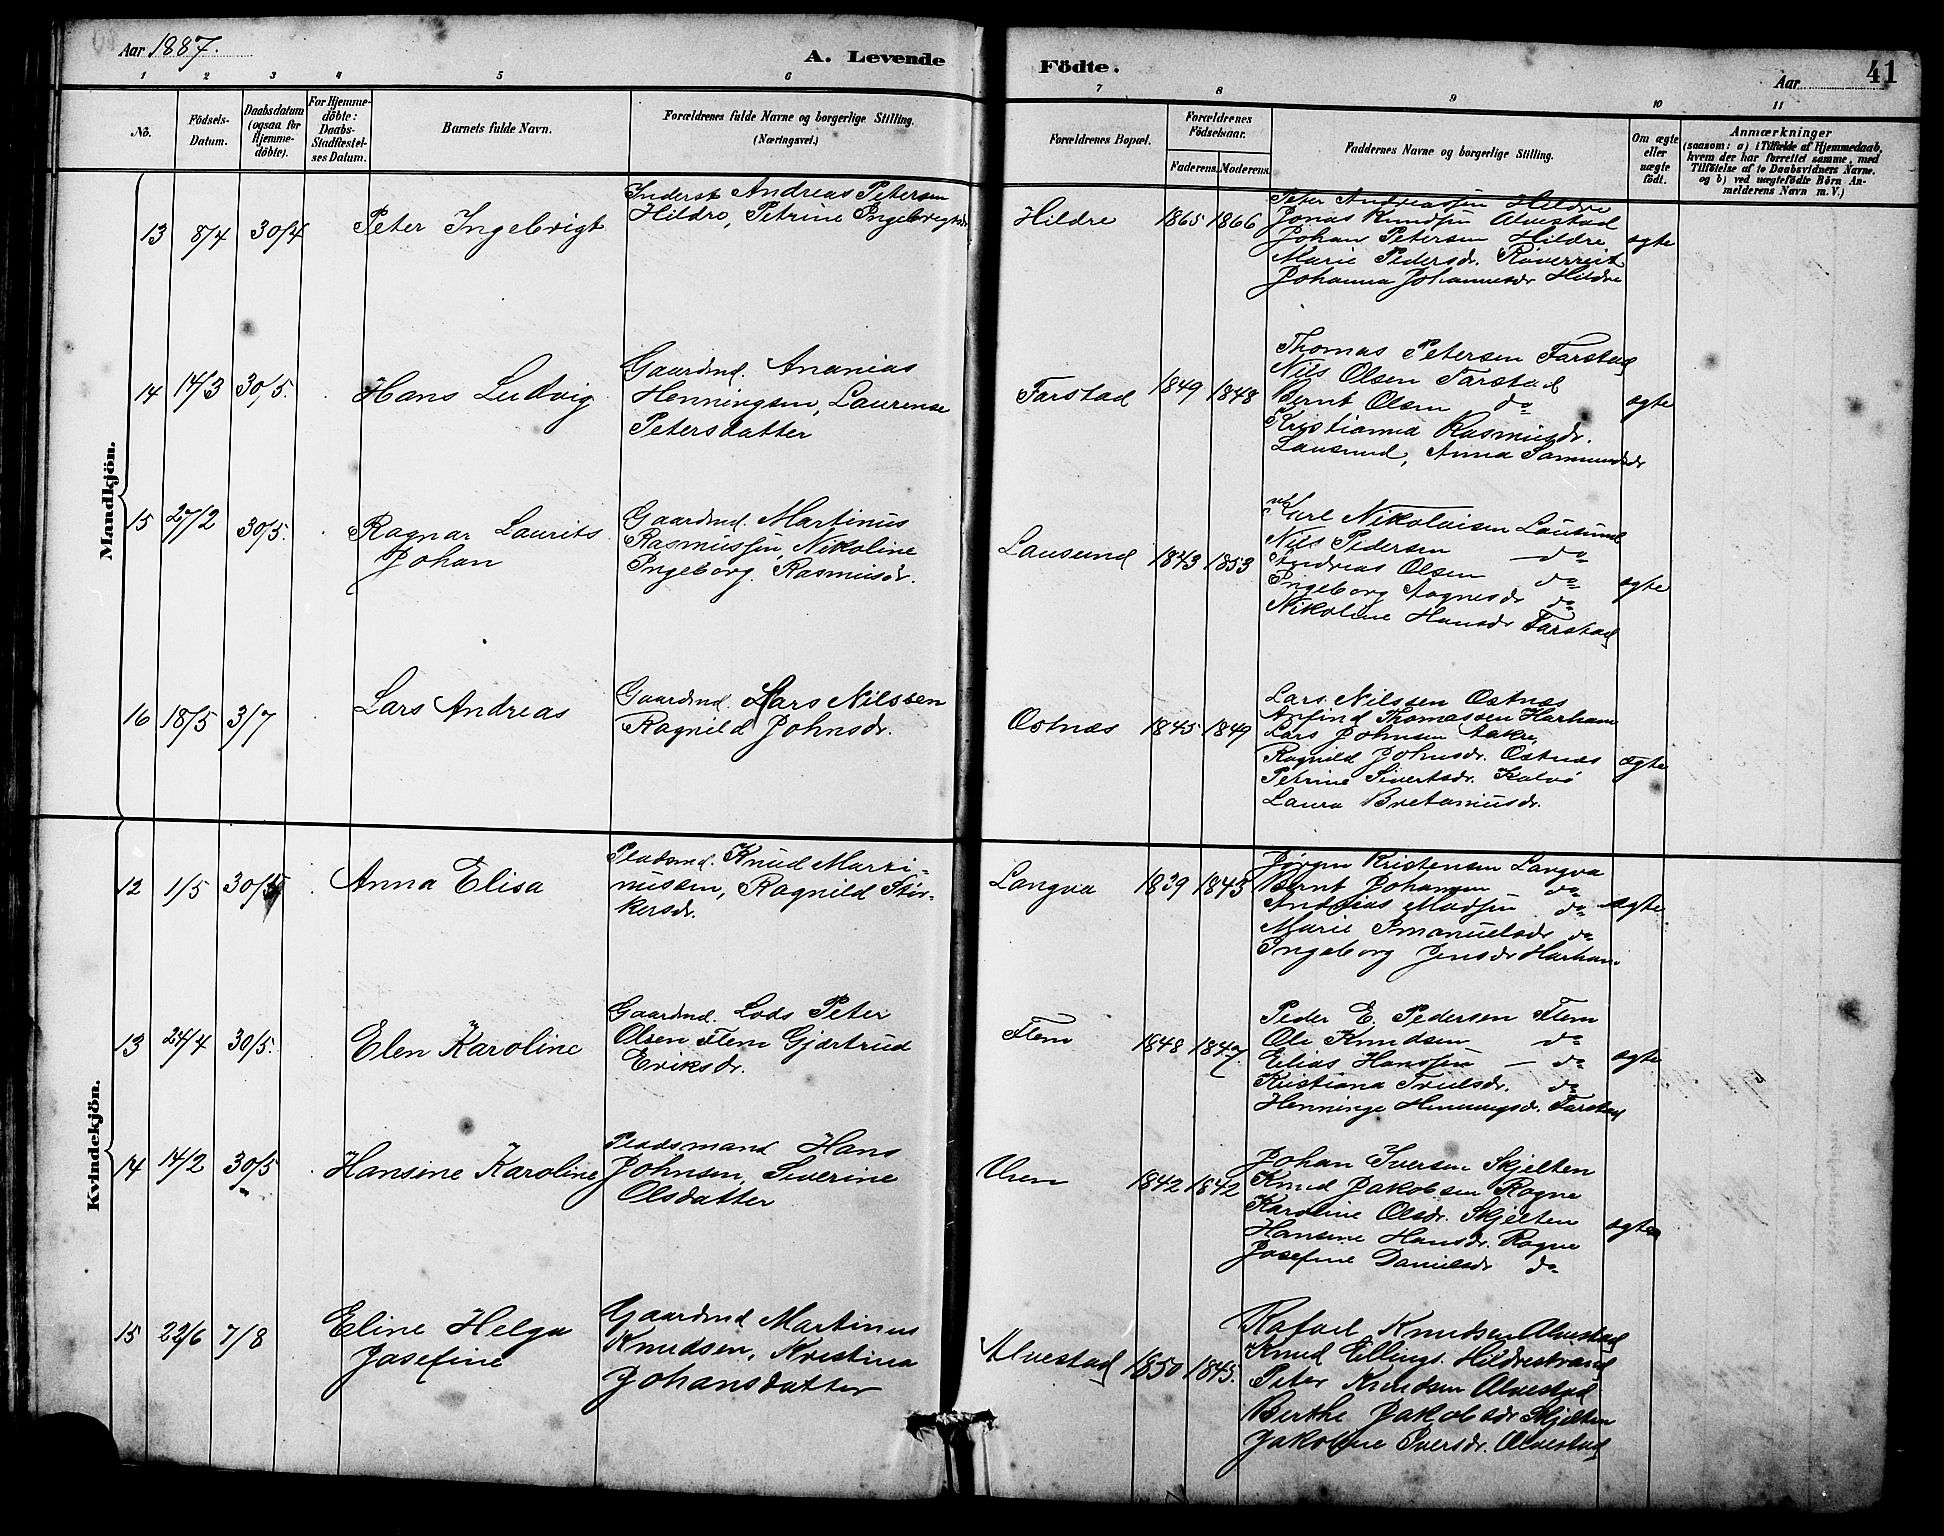 Aar 1887.
A. Levende
Födte.
Aar
41
1 2 3 4 5 6 7 8 9 10 11
No.
Födsels-
Datum.
Daabsdatum
(ogsaa for
Hjemme-
döbte).
For Hjemme-
döbte:
Daabs-
Stadfæstel-
ses Datum.
Barnets fulde Navn.
Forældrenes fulde Navne og borgerlige Stilling.
(Næringsvei.)
Forældrenes Bopæl.
Forældrenes
Födselsaar.
Faderens. Moderens.
Faddernes Navne og borgerlige Stilling.
Om ægte
eller
uægte
födt.
Anmærkninger
(saasom: a) i Tilfælde af Hjemmedaab,
hvem der har forrettet samme, med
Tilföielse af to Daabsvidners Navne.
og b) ved uægtefödte Börn An-
melderens Navn m. V.)
Mandkjön.
13 8/4 30/4 Peter Ingebrigt
Inderst Andreas Petersen
Hildre, Petrine Ingebrigtsdr
Hildre 1865 1866
Peter Andreassen Hildre
Jonas Knudsen Alvestad
Johan Petersen Hildre
Marie Pedersdr.
Johanna Johannesdr Hildre
ægte
14 14/3 30/5. Hans Ludvig
Gaardmd. Ananias
Henningsen, Laurense
Petersdatter
Farstad 1849 1848
Thomas Petersen Farstad
Nils Olsen Farstad
Bernt Olsen do
Kristianna Rasmusdr.
Lausund, Anna
ægte
15 27/2 30/5. Ragnar Laurits
Johan
Gaardmd. Martinus
Rasmussen, Nikoline
Ingeborg Rasmusdr.
Lausund 1843 1853
Karl Nikolaisen Lausund
Nils Pedersen — do
Andreas Olsen do
Ingeborg Aagnesdr do
Nikoline Hansdr Farstad
ægte
16 18/5 3/7 Lars Andreas
Gaardmd. Lars Nilssen
Ragnild Johnsdr.
Østnæs 1845 1849
Lars Nilssen Østnæs
Arfind Thomassen Harham
Lars Johnsen Aakre,
Ragnild Johnsdr. Østnæs
Petrine Sivertsdr. Kalvø
Laura Bretamusdr.
ægte
Kvindekjön.
12 1/5 30/5 Anna Elisa
Pladsmd. Knud Marti-
nussen, Ragnild Stör-
kersdr.
Langva 1839 1845
Jørgen Kristensen Langva
Bernt Johansen do
Andreas Madsen do
Marie Imanuelsdr do
Ingeborg Jensdr Harham
ægte
13 24/4 30/5. Elen Karoline
Gaardmd. Lods Peter
Olsen Flem Gjertrud
Eriksdr.
Flem 1848 1847.
Peder E. Pedersen Flem
Ole Knudsen do
Elias Hanssen — do
Kristiana Truelsdr. do
Henninge Henningsdr. Farstad
ægte
14 14/2 30/5 Hansine Karoline
Pladsmand Hans
Johnsen, Severine
Olsdatter
Ulven 1842 1842
Johan Iversen Skjelten
Knud Jakobsen Rogne
Karoline Olsdr. Skjelten
Hansine Hansdr. Rogne
Josefine Danielsdr do
ægte
15 22/6 7/8 Eline Helga
Josefine
Gaardmd Martinus
Knudsen, Kristina
Johansdatter
Alvestad 1850 1845.
Rafael Knudsen Alvestad
Knud Ellings. Hildrestrand
Peter Knudsen Alvestad
Berthe Jakobsdr Skjelten
Jakobine Iversdr. Alvestad